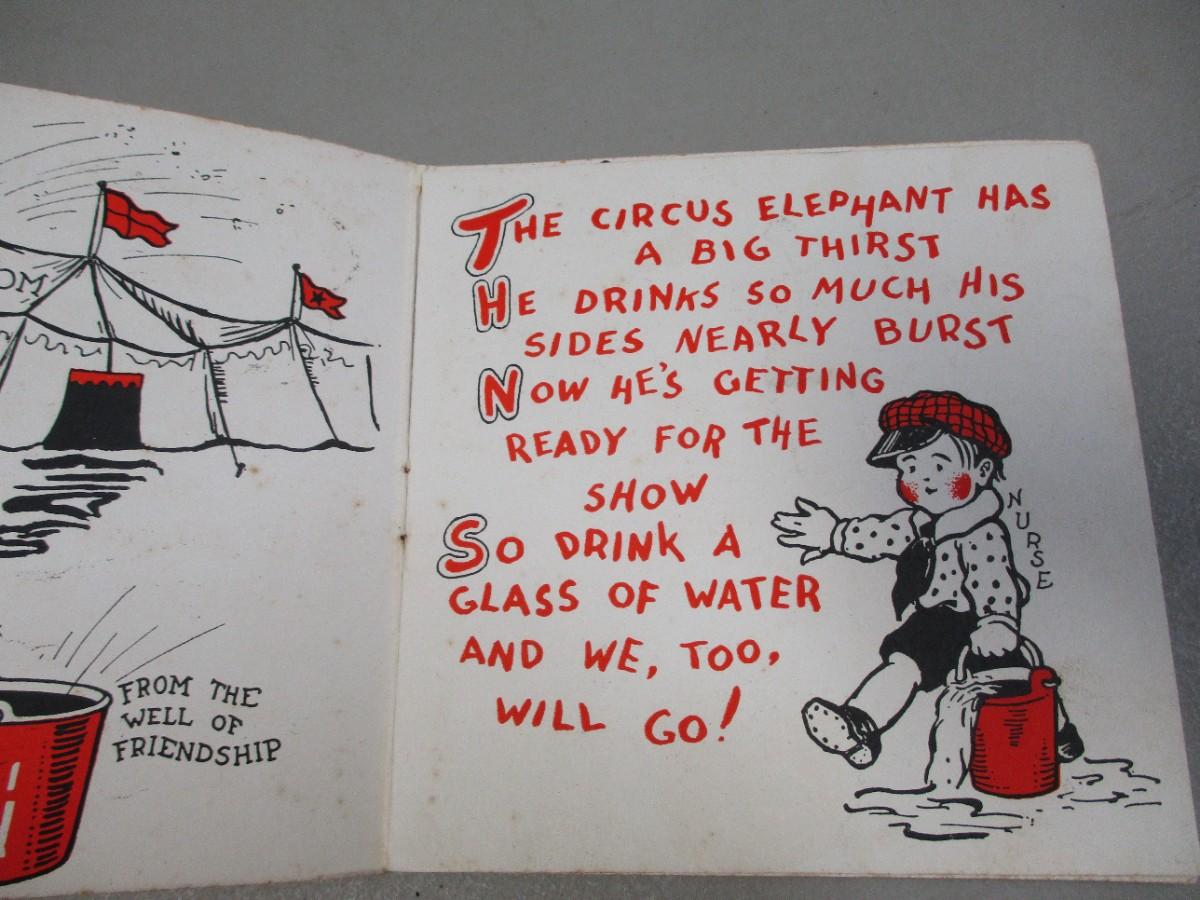 OM
FROM THE
WELL OF
FRIENDSHIP
THE CIRCUS ELEPHANT HAS
A BIG THIRST
HE DRINKS SO MUCH HIS
SIDES NEARLY BURST
NOW HE'S GETTING
READY FOR THE
SHOW
SO DRINK A
GLASS OF WATER
AND WE, TOO,
WILL GO!
NURSE